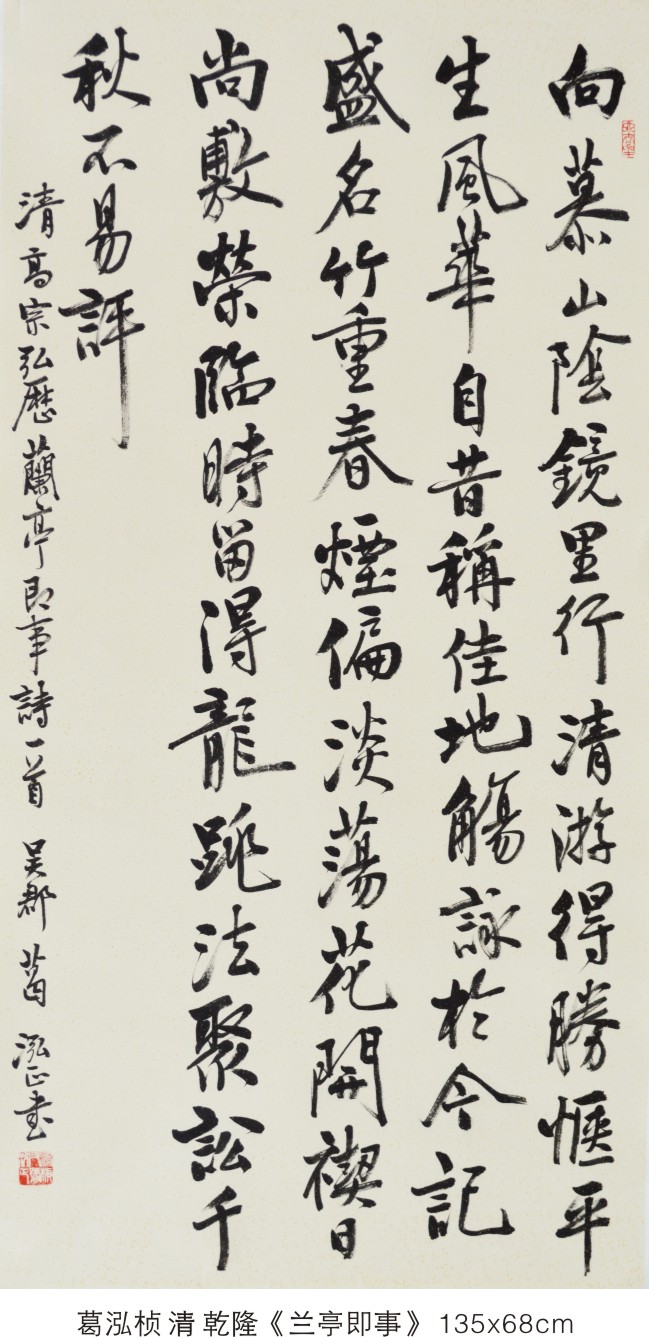 向慕山陰鏡里行清游得勝愜平
生風華自昔稱佳地觴詠於今記
盛名竹重春煙偏淡蕩花開禊日
尚敷榮臨時留得龍跳法聚訟千
秋不易評
清高宗弘歷蘭亭即事詩一首 吴郡 葛泓正书
葛泓桢 清 乾隆《兰亭即事》 135x68cm